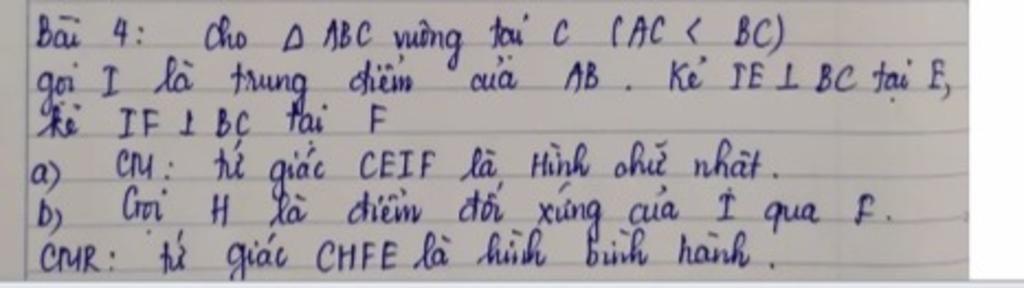 Bài 4: Cho Δ ABC vuông tại C (AC < BC)
gọi I là trung điểm của AB. Kẻ IE ⊥ BC tại E,
kẻ IF ⊥ BC tại F
a) CM: tứ giác CEIF là Hình chữ nhật.
b) Gọi H là điểm đối xứng của I qua F.
CMR: tứ giác CHFE là hình bình hành.